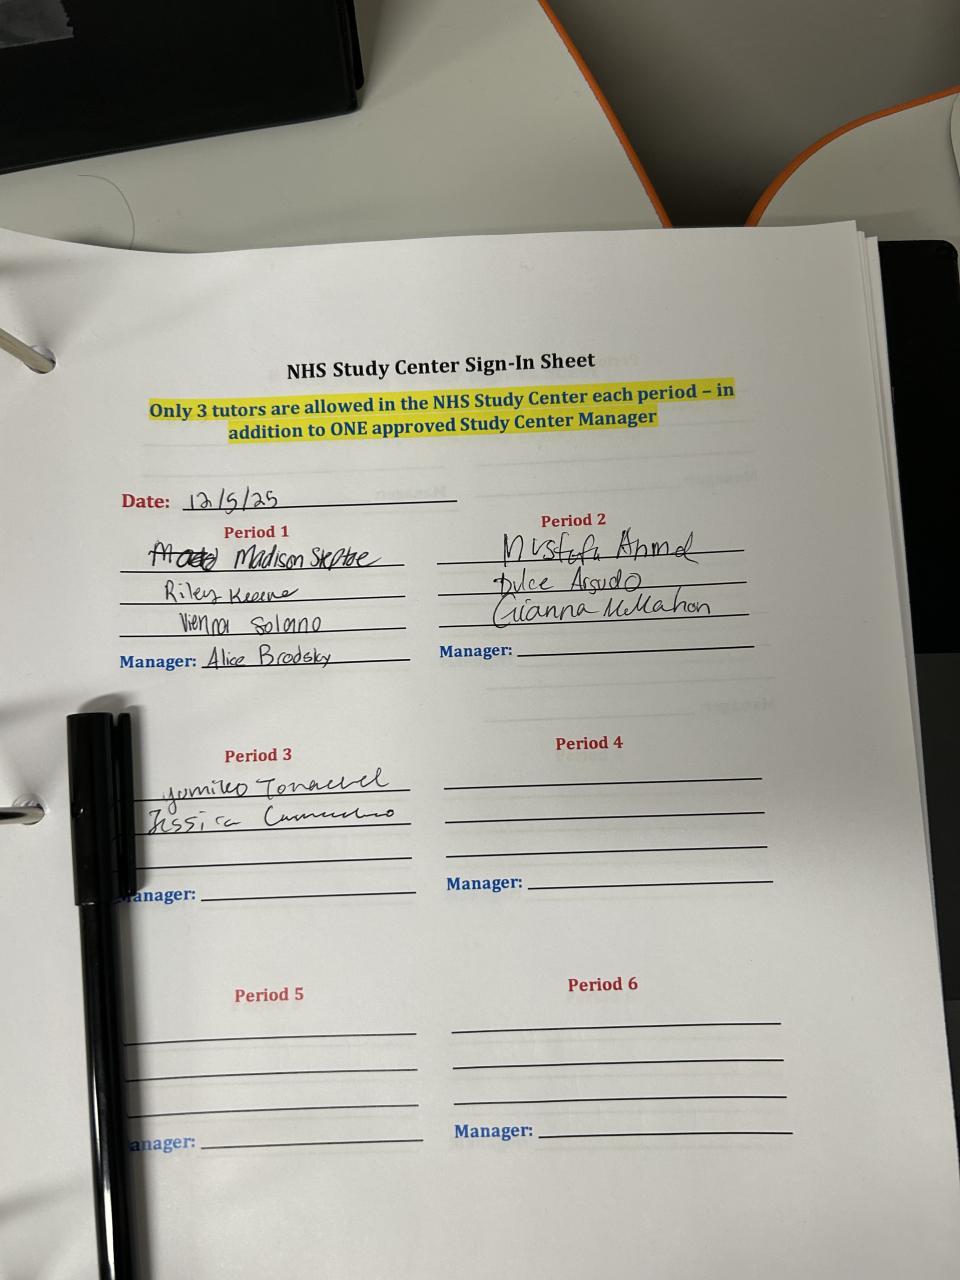 NHS Study Center Sign-In Sheet
Only 3 tutors are allowed in the NHS Study Center each period – in
addition to ONE approved Study Center Manager
Date: 12/5/25
Period 1
Madison Steptoe
Riley Keene
Vienna Solano
Manager: Alice Brodsky
Period 2
Mustafa Ahmed
Dulce Argudo
Gianna McMahon
Manager:
Period 3
Yumiko
Jessica
anager:
Period 4
Manager:
Period 5
anager:
Period 6
Manager: